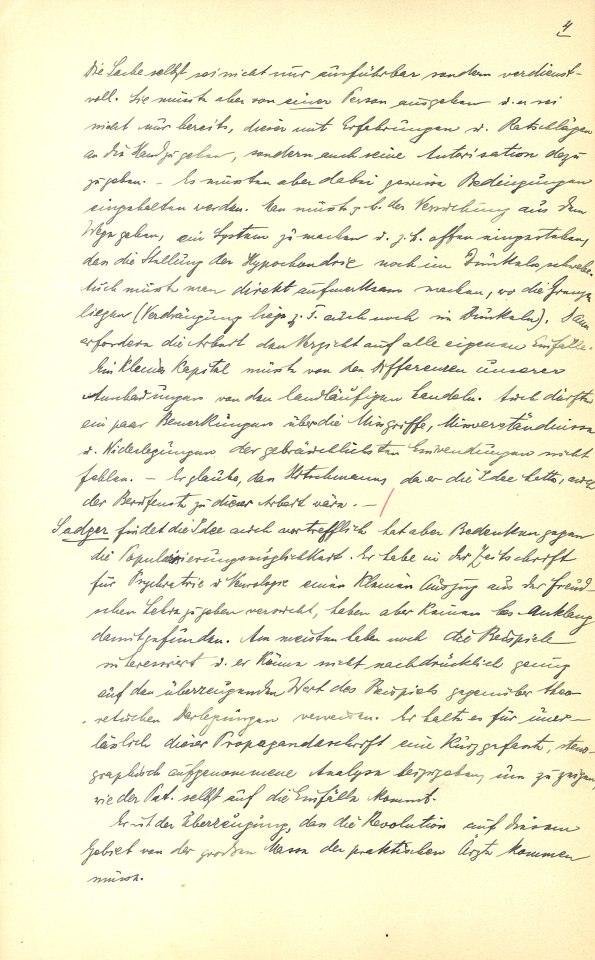 4
die Sache selbst sei nicht nur ausführbar sondern verdienst-
voll. Sie müsste aber von einer Person ausgehen u. er sei
nicht nur bereit, dieser mit Erfahrungen u. Ratschlägen
an die Hand zu gehen, sondern auch seine Autorisation dazu
zu geben. – Es müssten aber dabei gewisse Bedingungen
eingehalten werden. Man müsste z. b. der Versuchung aus dem
Wege gehen, ein System zu machen u. z. b. offen eingestehen,
dass die Stellung der Hypochondrie noch im Dunkeln schwebe.
Auch müsste man direkt aufmerksam machen, wo die Grenzen
liegen (Verdrängung liege z. T. auch noch im Dunkeln). Dann
erfordere die Arbeit den Verzicht auf alle eigenen Einfälle.
Ein kleines Kapitel müsste von den Differenzen unserer
Anschauungen von den landläufigen handeln. Auch dürften
ein paar Bemerkungen über die Missgriffe, Missverständnisse
u. Widerlegungen der gebräuchlichsten Einwendungen nicht
fehlen. – Er glaube, dass Hitschmann, da er die Idee hatte, auch
der Berufenste zu dieser Arbeit wäre. –
Sadger findet die Idee auch vortrefflich hat aber Bedenken gegen
die Popularisierungsmöglichkeit. Er habe in der Zeitschrift
für Psychiatrie u Neurologie einen kleinen Auszug aus der Freud-
schen Lehre zu geben versucht, habe aber keinen bes. Anklang
damit gefunden. Am meisten haben noch die Beispiele
interessiert u. er könne nicht nachdrücklich genug
auf den überzeugenden Wert des Beispiels gegenüber theo-
retischen Darlegungen verweisen. Er halte es für uner-
lässlich dieser Propagandaschrift eine kurzgefasste, steno-
graphisch aufgenommene Analyse beizugeben, um zu zeigen,
wie der Pat. selbst auf die Einfälle kommt.
Er ist der Überzeugung, dass die Revolution auf diesem
Gebiet von der grossen Masse der praktischen Ärzte kommen
müsse.